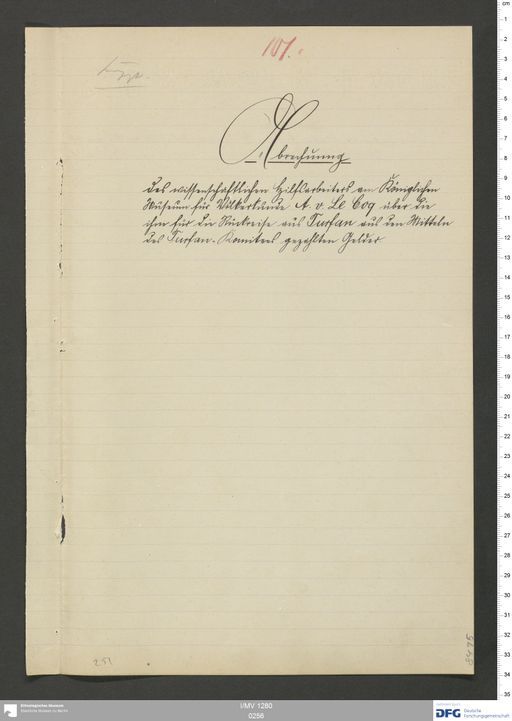 101.
Abrechnung
des wissenschaftlichen Hilfsarbeiters am Königlichen
Museum für Völkerkunde A. v. Le Coq über die
ihm für die Rückreise aus Turfan aus den Mitteln
des Turfan-Komitees gezahlten Gelder
251
Ethnologisches Museum
Staatliche Museen zu Berlin
I/MV 1280
0256
DFG Deutsche
Forschungsgemeinschaft
cm
1
2
3
4
5
6
7
8
9
10
11
12
13
14
15
16
17
18
19
20
21
22
23
24
25
26
27
28
29
30
31
32
33
34
35